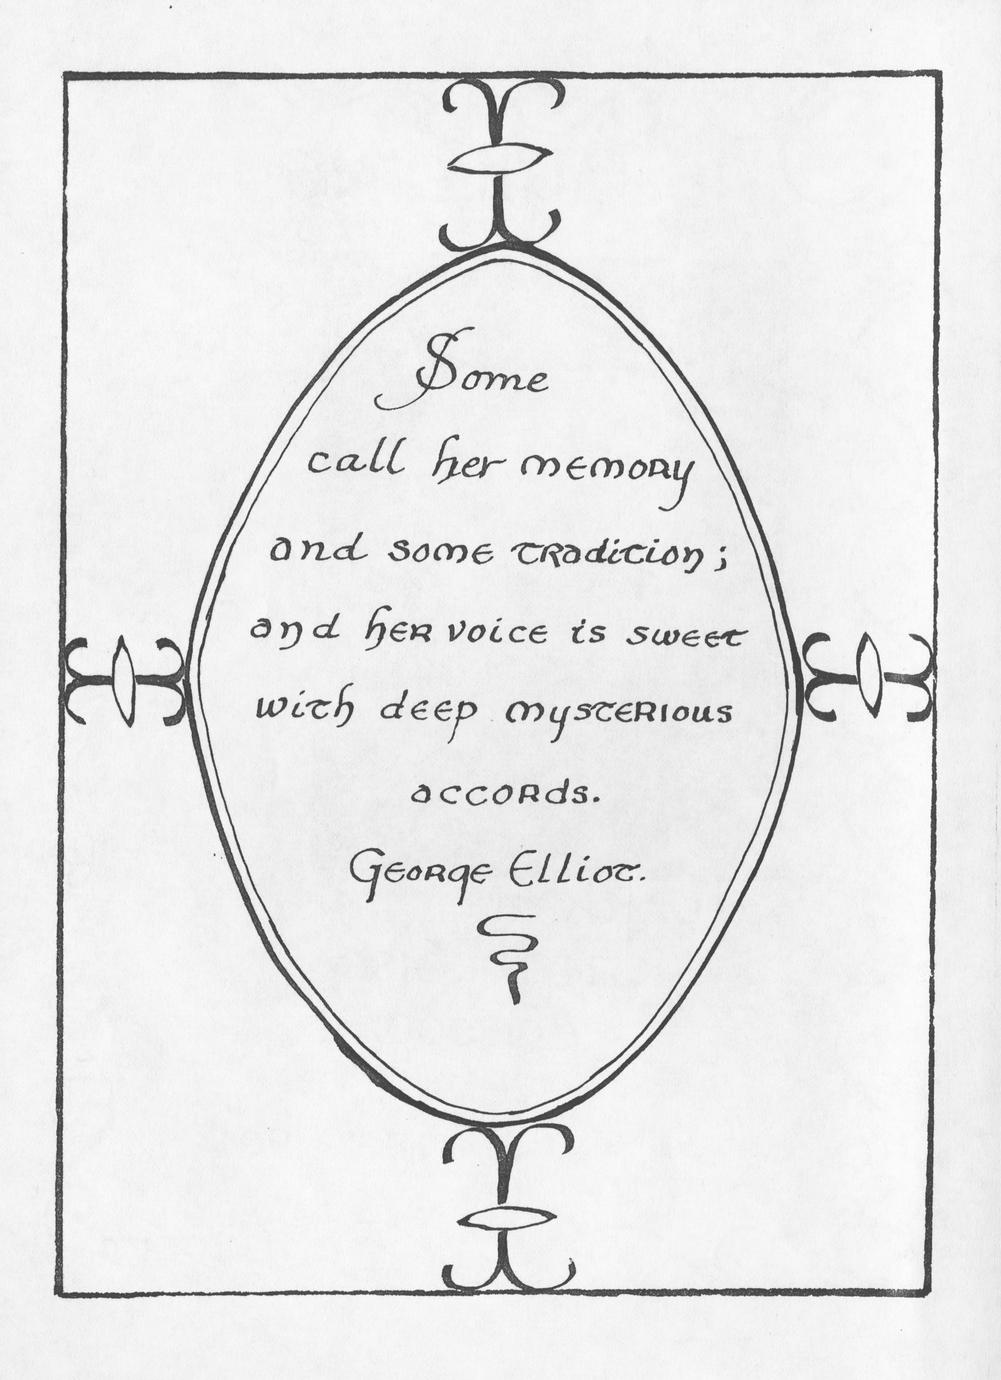 Some
call her memory
and some tradition;
and her voice is sweet
with deep mysterious
accords.
George Elliot.